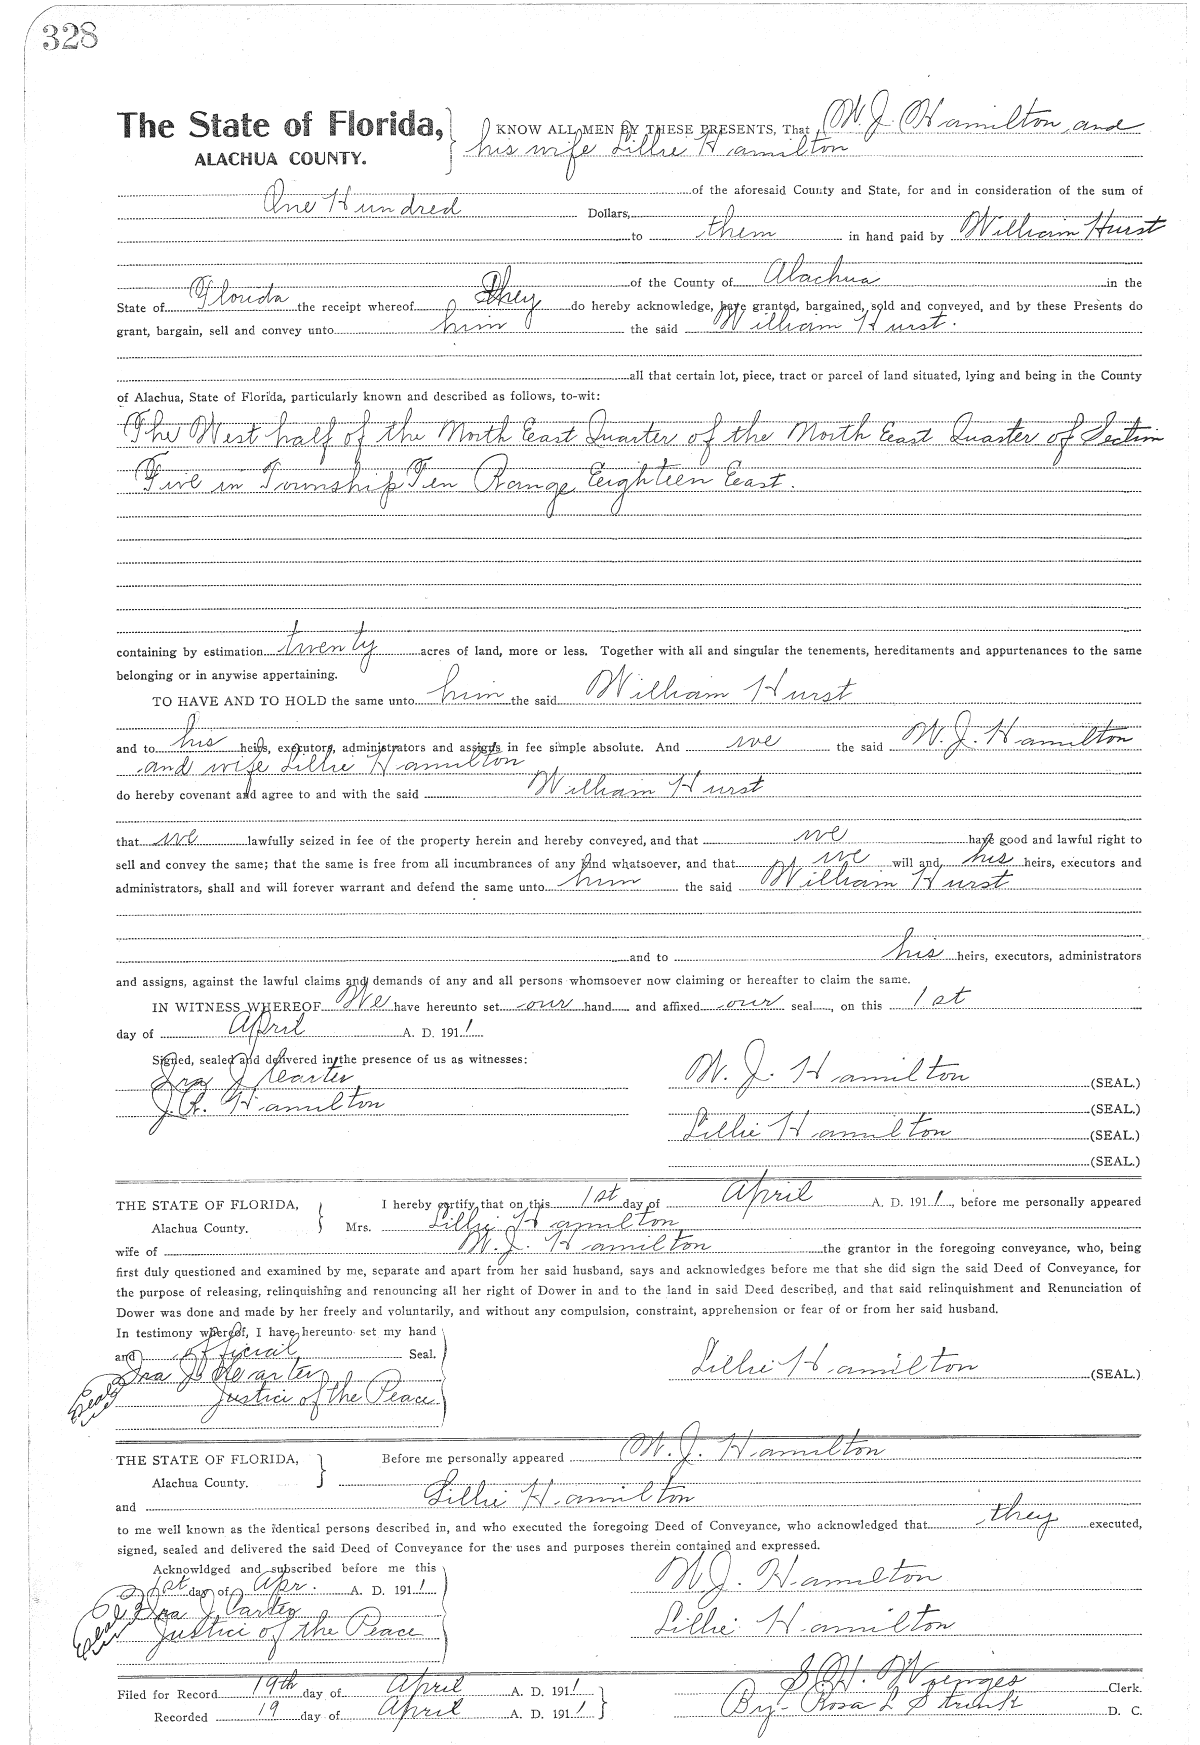 328
The State of Florida, KNOW ALL MEN BY THESE PRESENTS, That W. J. Hamilton and
ALACHUA COUNTY. his wife Lillie Hamilton
of the aforesaid County and State, for and in consideration of the sum of
One Hundred Dollars,
to them in hand paid by William Hurst
of the County of Alachua in the
State of Florida the receipt whereof they do hereby acknowledge, have granted, bargained, sold and conveyed, and by these Presents do
grant, bargain, sell and convey unto him the said William Hurst.
all that certain lot, piece, tract or parcel of land situated, lying and being in the County
of Alachua, State of Florida, particularly known and described as follows, to-wit:
The West half of the North East Quarter of the North East Quarter of Section
Five in Township Ten Range Eighteen East.
containing by estimation twenty acres of land, more or less. Together with all and singular the tenements, hereditaments and appurtenances to the same
belonging or in anywise appertaining.
TO HAVE AND TO HOLD the same unto him the said William Hurst
and to his heirs, executors, administrators and assigns in fee simple absolute. And we the said W. J. Hamilton
and wife Lillie Hamilton
do hereby covenant and agree to and with the said William Hurst
that we lawfully seized in fee of the property herein and hereby conveyed, and that we have good and lawful right to
sell and convey the same; that the same is free from all incumbrances of any kind whatsoever, and that we will and his heirs, executors and
administrators, shall and will forever warrant and defend the same unto him the said William Hurst
and to his heirs, executors, administrators
and assigns, against the lawful claims and demands of any and all persons whomsoever now claiming or hereafter to claim the same.
IN WITNESS WHEREOF We have hereunto set our hand and affixed our seal, on this 1st
day of April A. D. 1911
Signed, sealed and delivered in the presence of us as witnesses:
Ira J Carter W. J. Hamilton (SEAL.)
J. A. Hamilton (SEAL.)
Lillie Hamilton (SEAL.)
(SEAL.)
THE STATE OF FLORIDA, I hereby certify that on this 1st day of April A. D. 1911, before me personally appeared
Alachua County. Mrs. Lillie Hamilton
wife of W. J. Hamilton the grantor in the foregoing conveyance, who, being
first duly questioned and examined by me, separate and apart from her said husband, says and acknowledges before me that she did sign the said Deed of Conveyance, for
the purpose of releasing, relinquishing and renouncing all her right of Dower in and to the land in said Deed described, and that said relinquishment and Renunciation of
Dower was done and made by her freely and voluntarily, and without any compulsion, constraint, apprehension or fear of or from her said husband.
In testimony whereof, I have hereunto set my hand
and official Seal.
Ira J Carter Lillie Hamilton (SEAL.)
Seal Justice of the Peace
THE STATE OF FLORIDA, Before me personally appeared W. J. Hamilton
Alachua County.
and Lillie Hamilton
to me well known as the identical persons described in, and who executed the foregoing Deed of Conveyance, who acknowledged that they executed,
signed, sealed and delivered the said Deed of Conveyance for the uses and purposes therein contained and expressed.
Acknowldged and subscribed before me this
1st day of Apr. A. D. 1911 W. J. Hamilton
Ira J Carter
Seal Justice of the Peace Lillie Hamilton
Filed for Record 19th day of April A. D. 1911 S. H. Wienges Clerk.
Recorded 19 day of April A. D. 1911 By Rosa L Strunk D. C.